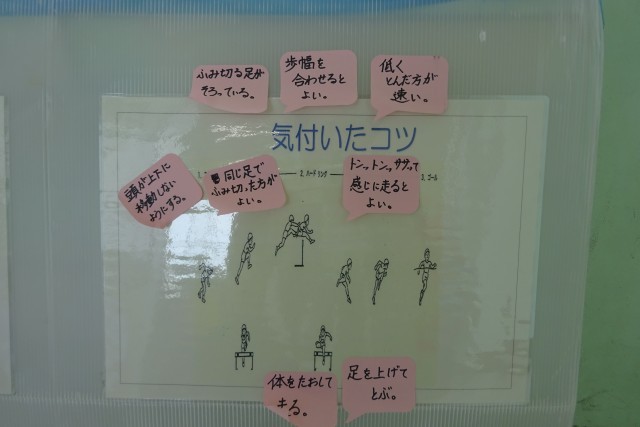 ふみ切る足が
そろっている。
歩幅を
合わせると
よい。
低く
とんだ方が
速い。
気付いたコツ
頭が上下に
移動しない
ようにする。
同じ足で
ふみ切った方が
よい。
2. ハードリング
トントントン,ササッって
感じに走ると
よい。
3. ゴール
体をたおして
する。
足を上げて
とぶ。